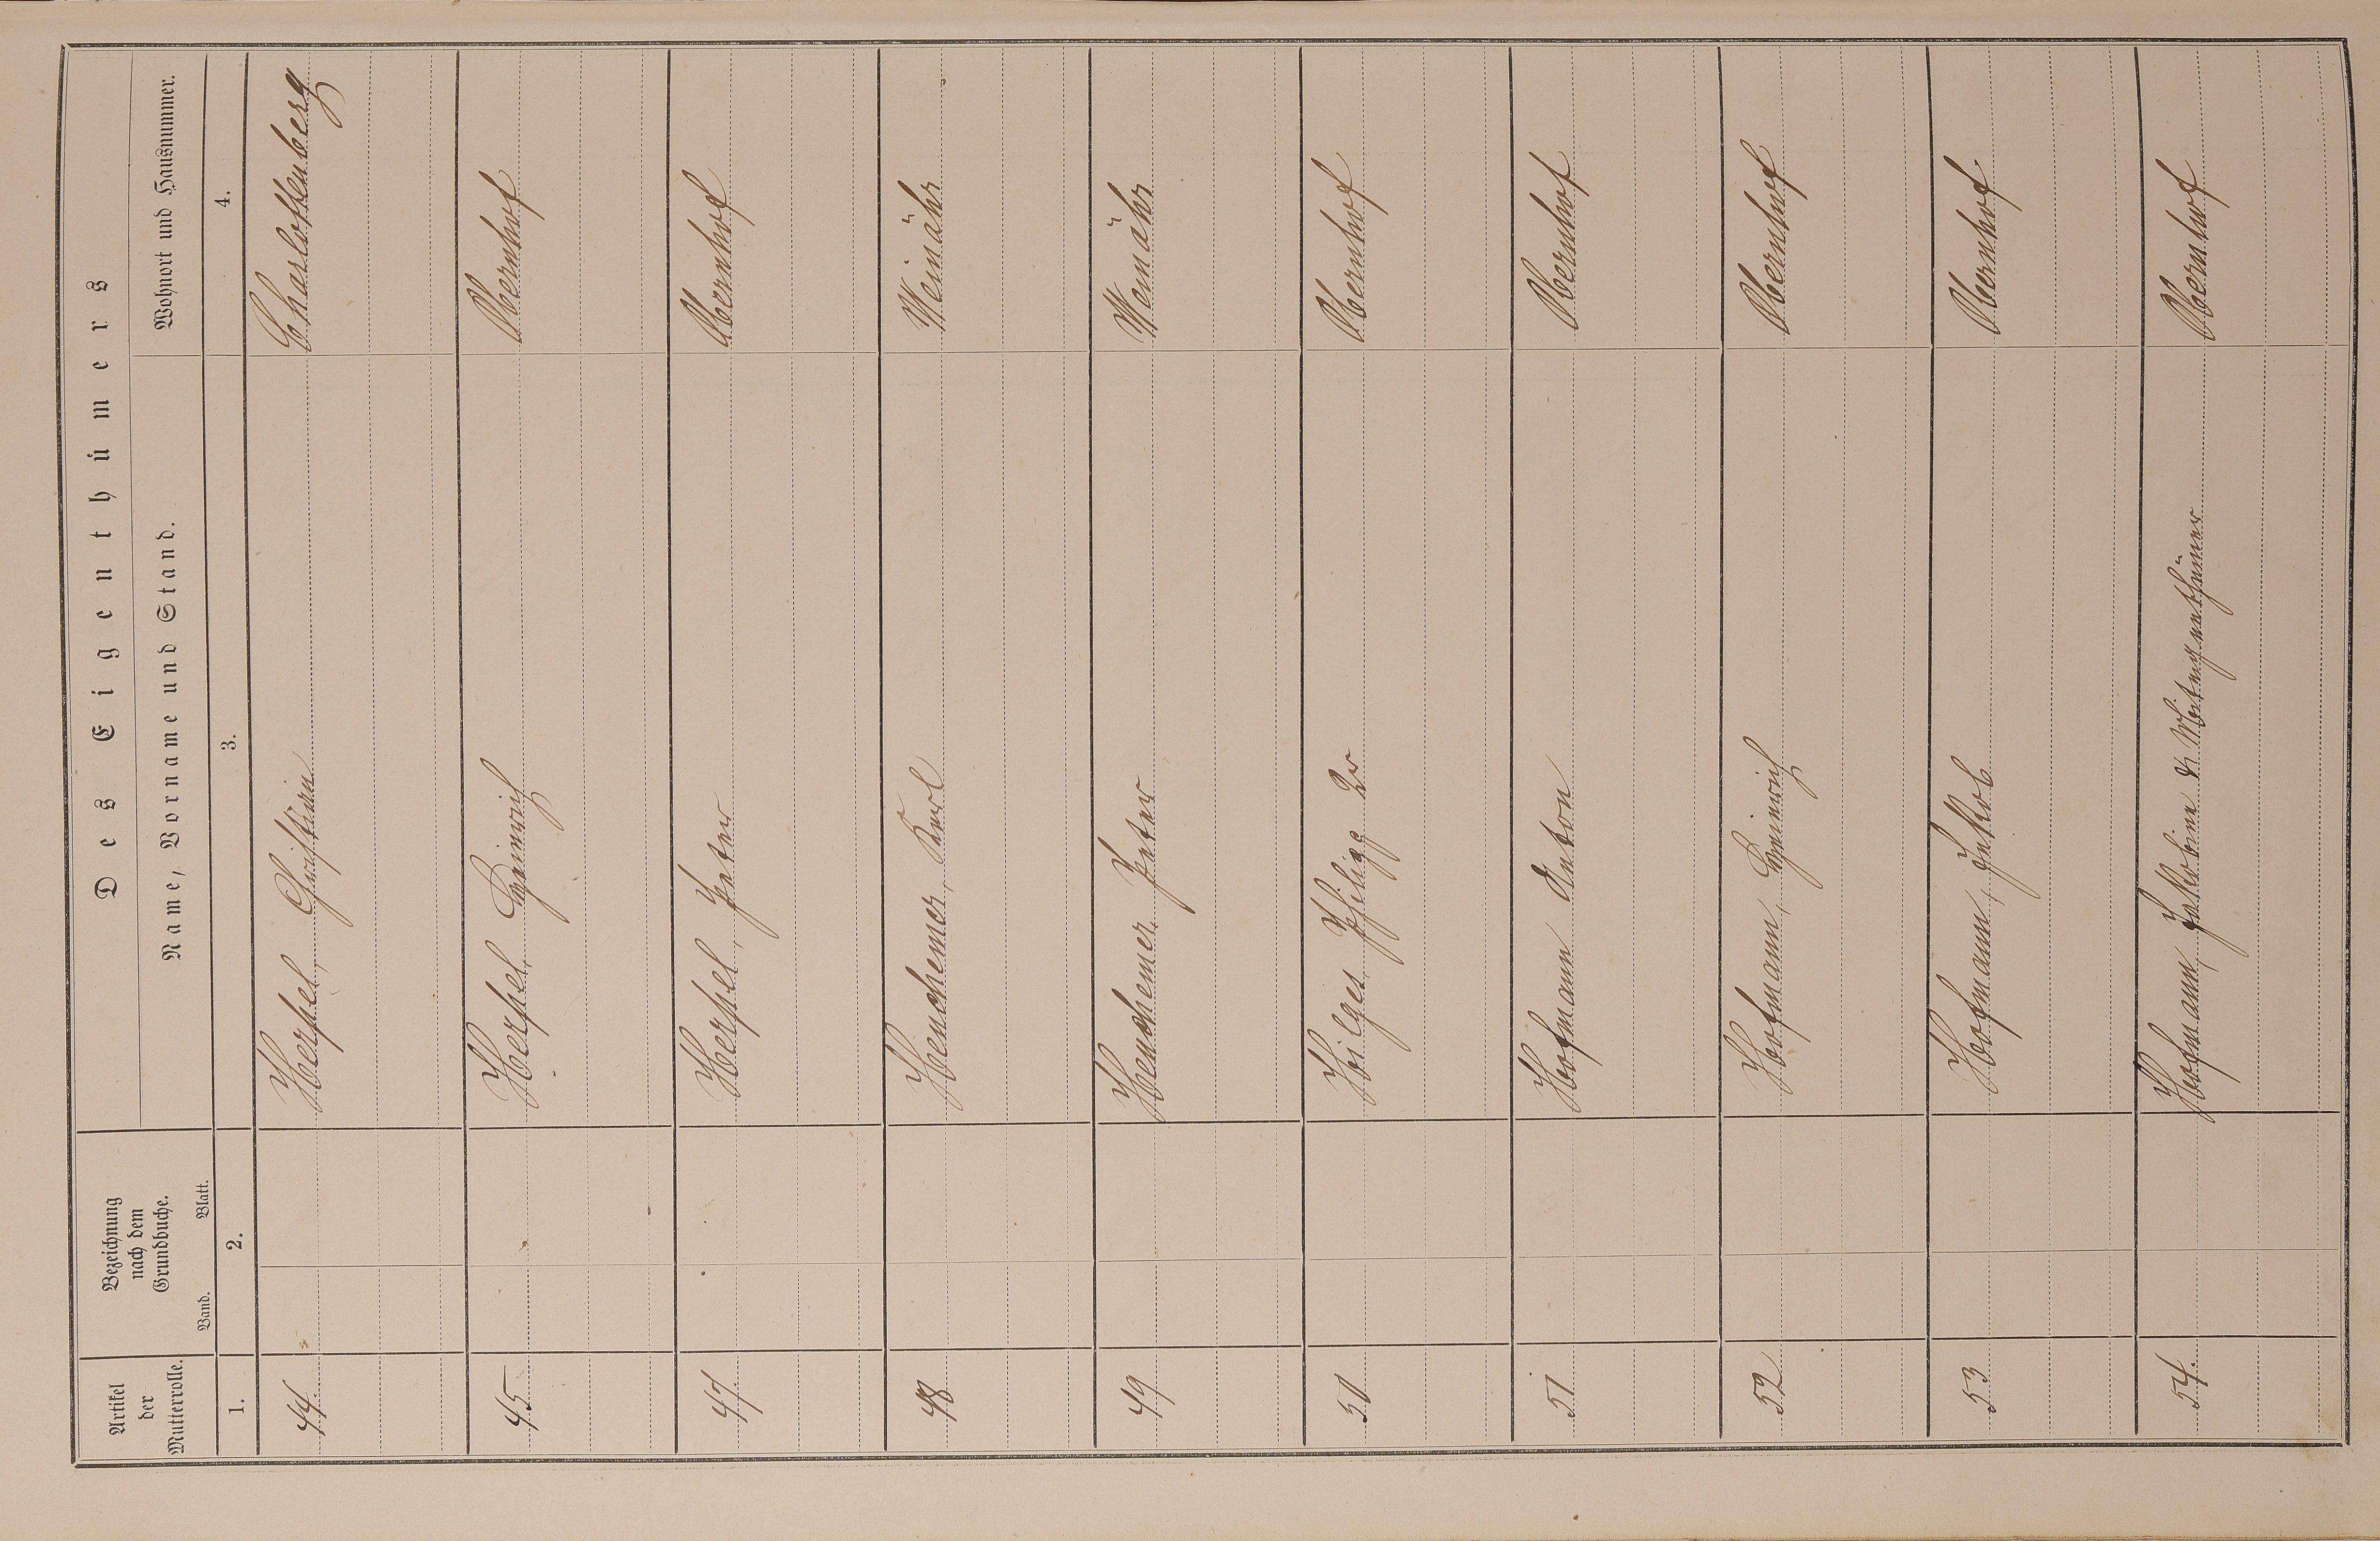 Des Eigenthümers
Artikel der Mutterrolle.
Bezeichnung nach dem Grundbuche.
Band. Blatt.
Name, Vorname und Stand.
Wohnort und Hausnummer.
1. 2. 3. 4.
44. Herpel, Christian Charlottenberg
45 Herpel, Heinrich Obernhof
47. Herpel, Peter Obernhof
48 Heinchemer, Karl Weinähr
49 Henchemer, Peter Weinähr
50 Hilges, Philipp 2r Obernhof
51 Hofmann Anton Obernhof
52 Hofmann, Heinrich Obernhof
53 Hofmann, Jakob Obernhof
54. Hofmann, Jakobine & Miteigenthümer Obernhof